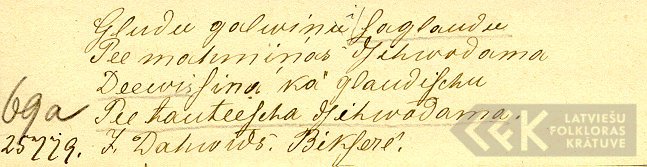 Gludu galwinu saglaudu
Pee mahminas dsihwodama
Deewissina' kā glaudischu
69a Pee tauteescha dsihwodama.
25779. J. Dahwids. Bikserē.
LATVIEŠU
FOLKLORAS
KRĀTUVE